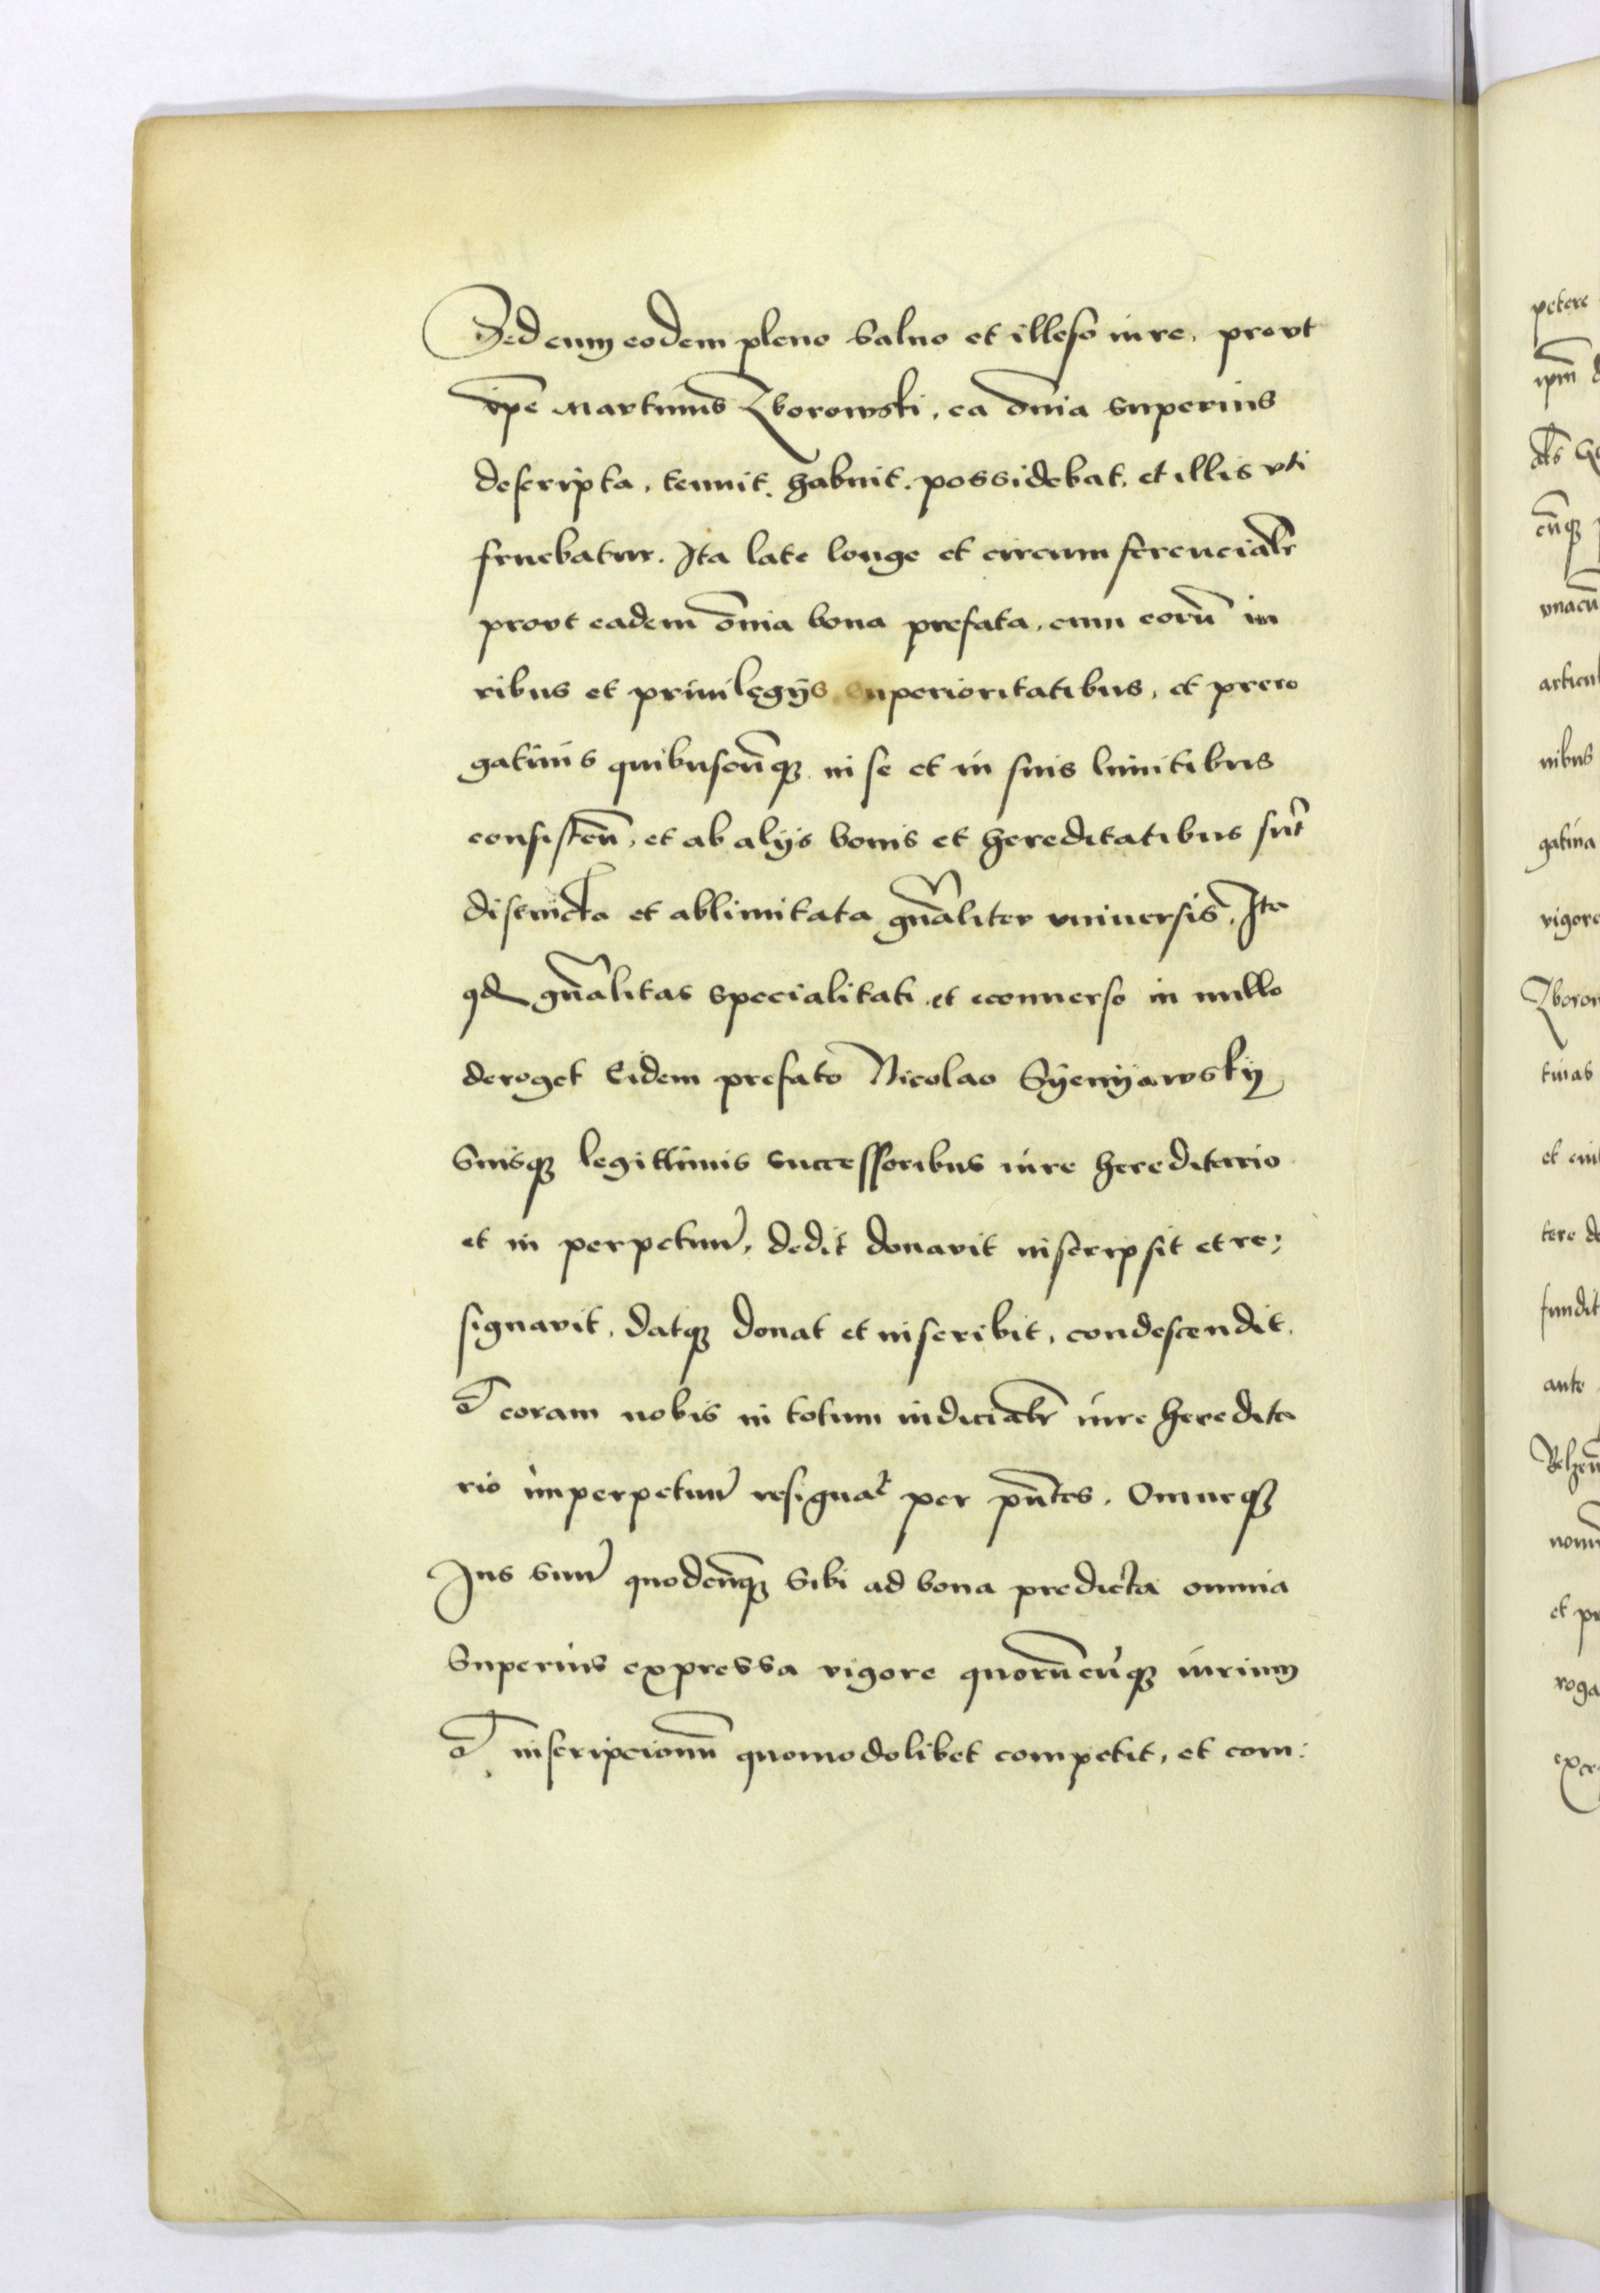 Sed cum eodem pleno saluo et illeso iure, prout
ipē Martinus Zborowski, ea om̄ia superius
descripta, tenuit, habuit, possidebat, et illis vti
fruebatur. Ita late longe et circumferencialr̄
prout eadem om̄ia bona prefata, cum eorū iu
ribus et priuilegijs superioritatibus, et prero
gatiuis quibuscūqȝ in se et in suis limitibus
consisten̄, et ab alijs bonis et hereditatibus sūt
distincta et ablimitata gn̄aliter vniuersis, Ita
qd gn̄alitas specialitati et econuerso in nullo
deroget Eidem prefato Nicolao Syenyawsky
suisqȝ legittimis successoribus iure hereditario
et in perpetuū, dedit donavit inscripsit et re:
signavit, datqȝ donat et inscribit, condescendit,
Et coram nobis in totum iudicialr̄ iure heredita
rio imperpetuū resignat per pn̄tes. Omneqȝ
Ius suū quodcūqȝ sibi ad bona predicta omnia
superius expressa vigore quorūcūqȝ iurium
Et inscripcionū quomodolibet competit, et com:
petere
ipm̄
vnacū
articul
nibus
gatiua
vigore
Zborow
tuias
tere de
fundit
ante
et pr
roga